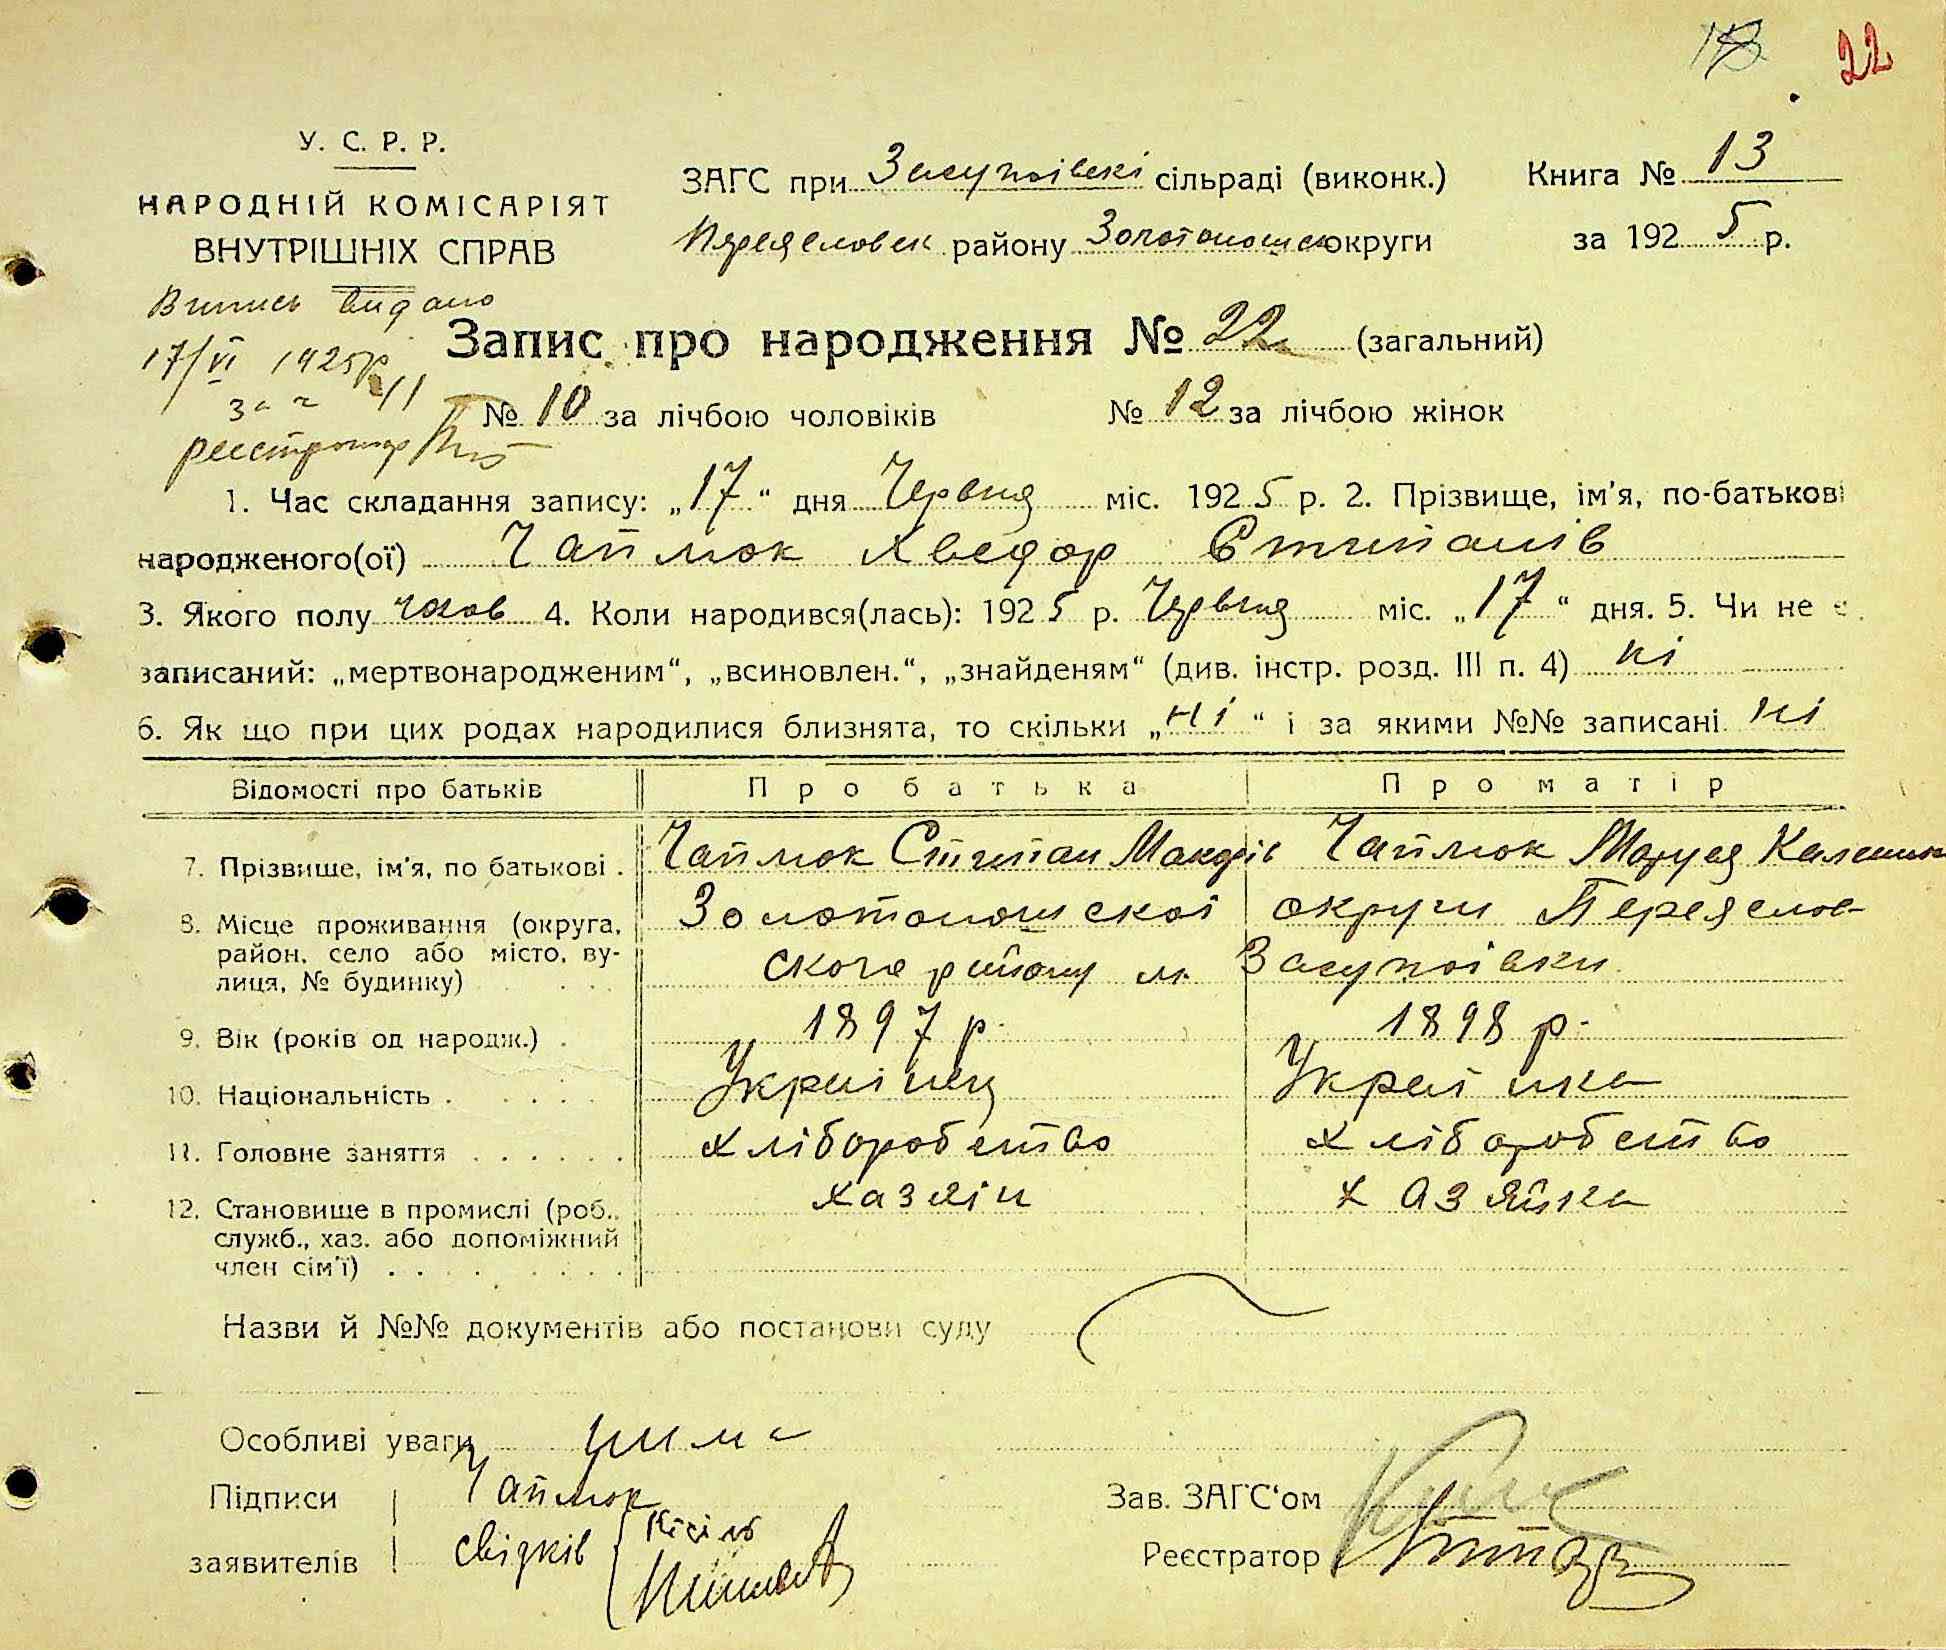 22
У. С. Р. Р.
НАРОДНІЙ КОМІСАРІЯТ
ВНУТРІШНІХ СПРАВ
ЗАГС при Засупоівскі сільраді (виконк.)
Книга № 13
Переяславск району Золотоношск округи
за 1925 р.
Випись видано
17/VI 1925р
за ч 11
реєстратор
Запис про народження № 22 (загальний)
№ 10 за лічбою чоловіків
№ 12 за лічбою жінок
1. Час складання запису: „17“ дня Червня міс. 1925 р. 2. Прізвище, ім'я, по-батькові
народженого(ої) Чаплюк Хведор Стипанів
3. Якого полу чолов 4. Коли народився(лась): 1925 р. Червня міс. „17“ дня. 5. Чи не є
записаний: „мертвонародженим“, „всиновлен.“, „знайденям“ (див. інстр. розд. III п. 4) ні
6. Як що при цих родах народилися близнята, то скільки „ні“ і за якими №№ записані ні
Відомості про батьків Про батька Про матір
7. Прізвище, ім'я, по батькові . Чаплюк Стипан Макарів Чаплюк Маруся
8. Місце проживання (округа, Золотоношскої округи Переяслов-
район, село або місто, ву- ского району м. Засупоівки
лиця, № будинку) . . .
9. Вік (років од народж.) . 1897 р. 1898 р.
10. Національність . . . . . Украінец Украінка
11. Головне заняття . . . . . . хлібороботво хлібороботво
12. Становище в промислі (роб., хазяін хазяйка
служб., хаз. або допоміжний
член сім'ї) . . . . . . . .
Назви й №№ документів або постанови суду
Особливі уваги нима
Підписи Чаплюк
Зав. ЗАГС'ом
заявителів свідків Кісіль
Реєстратор